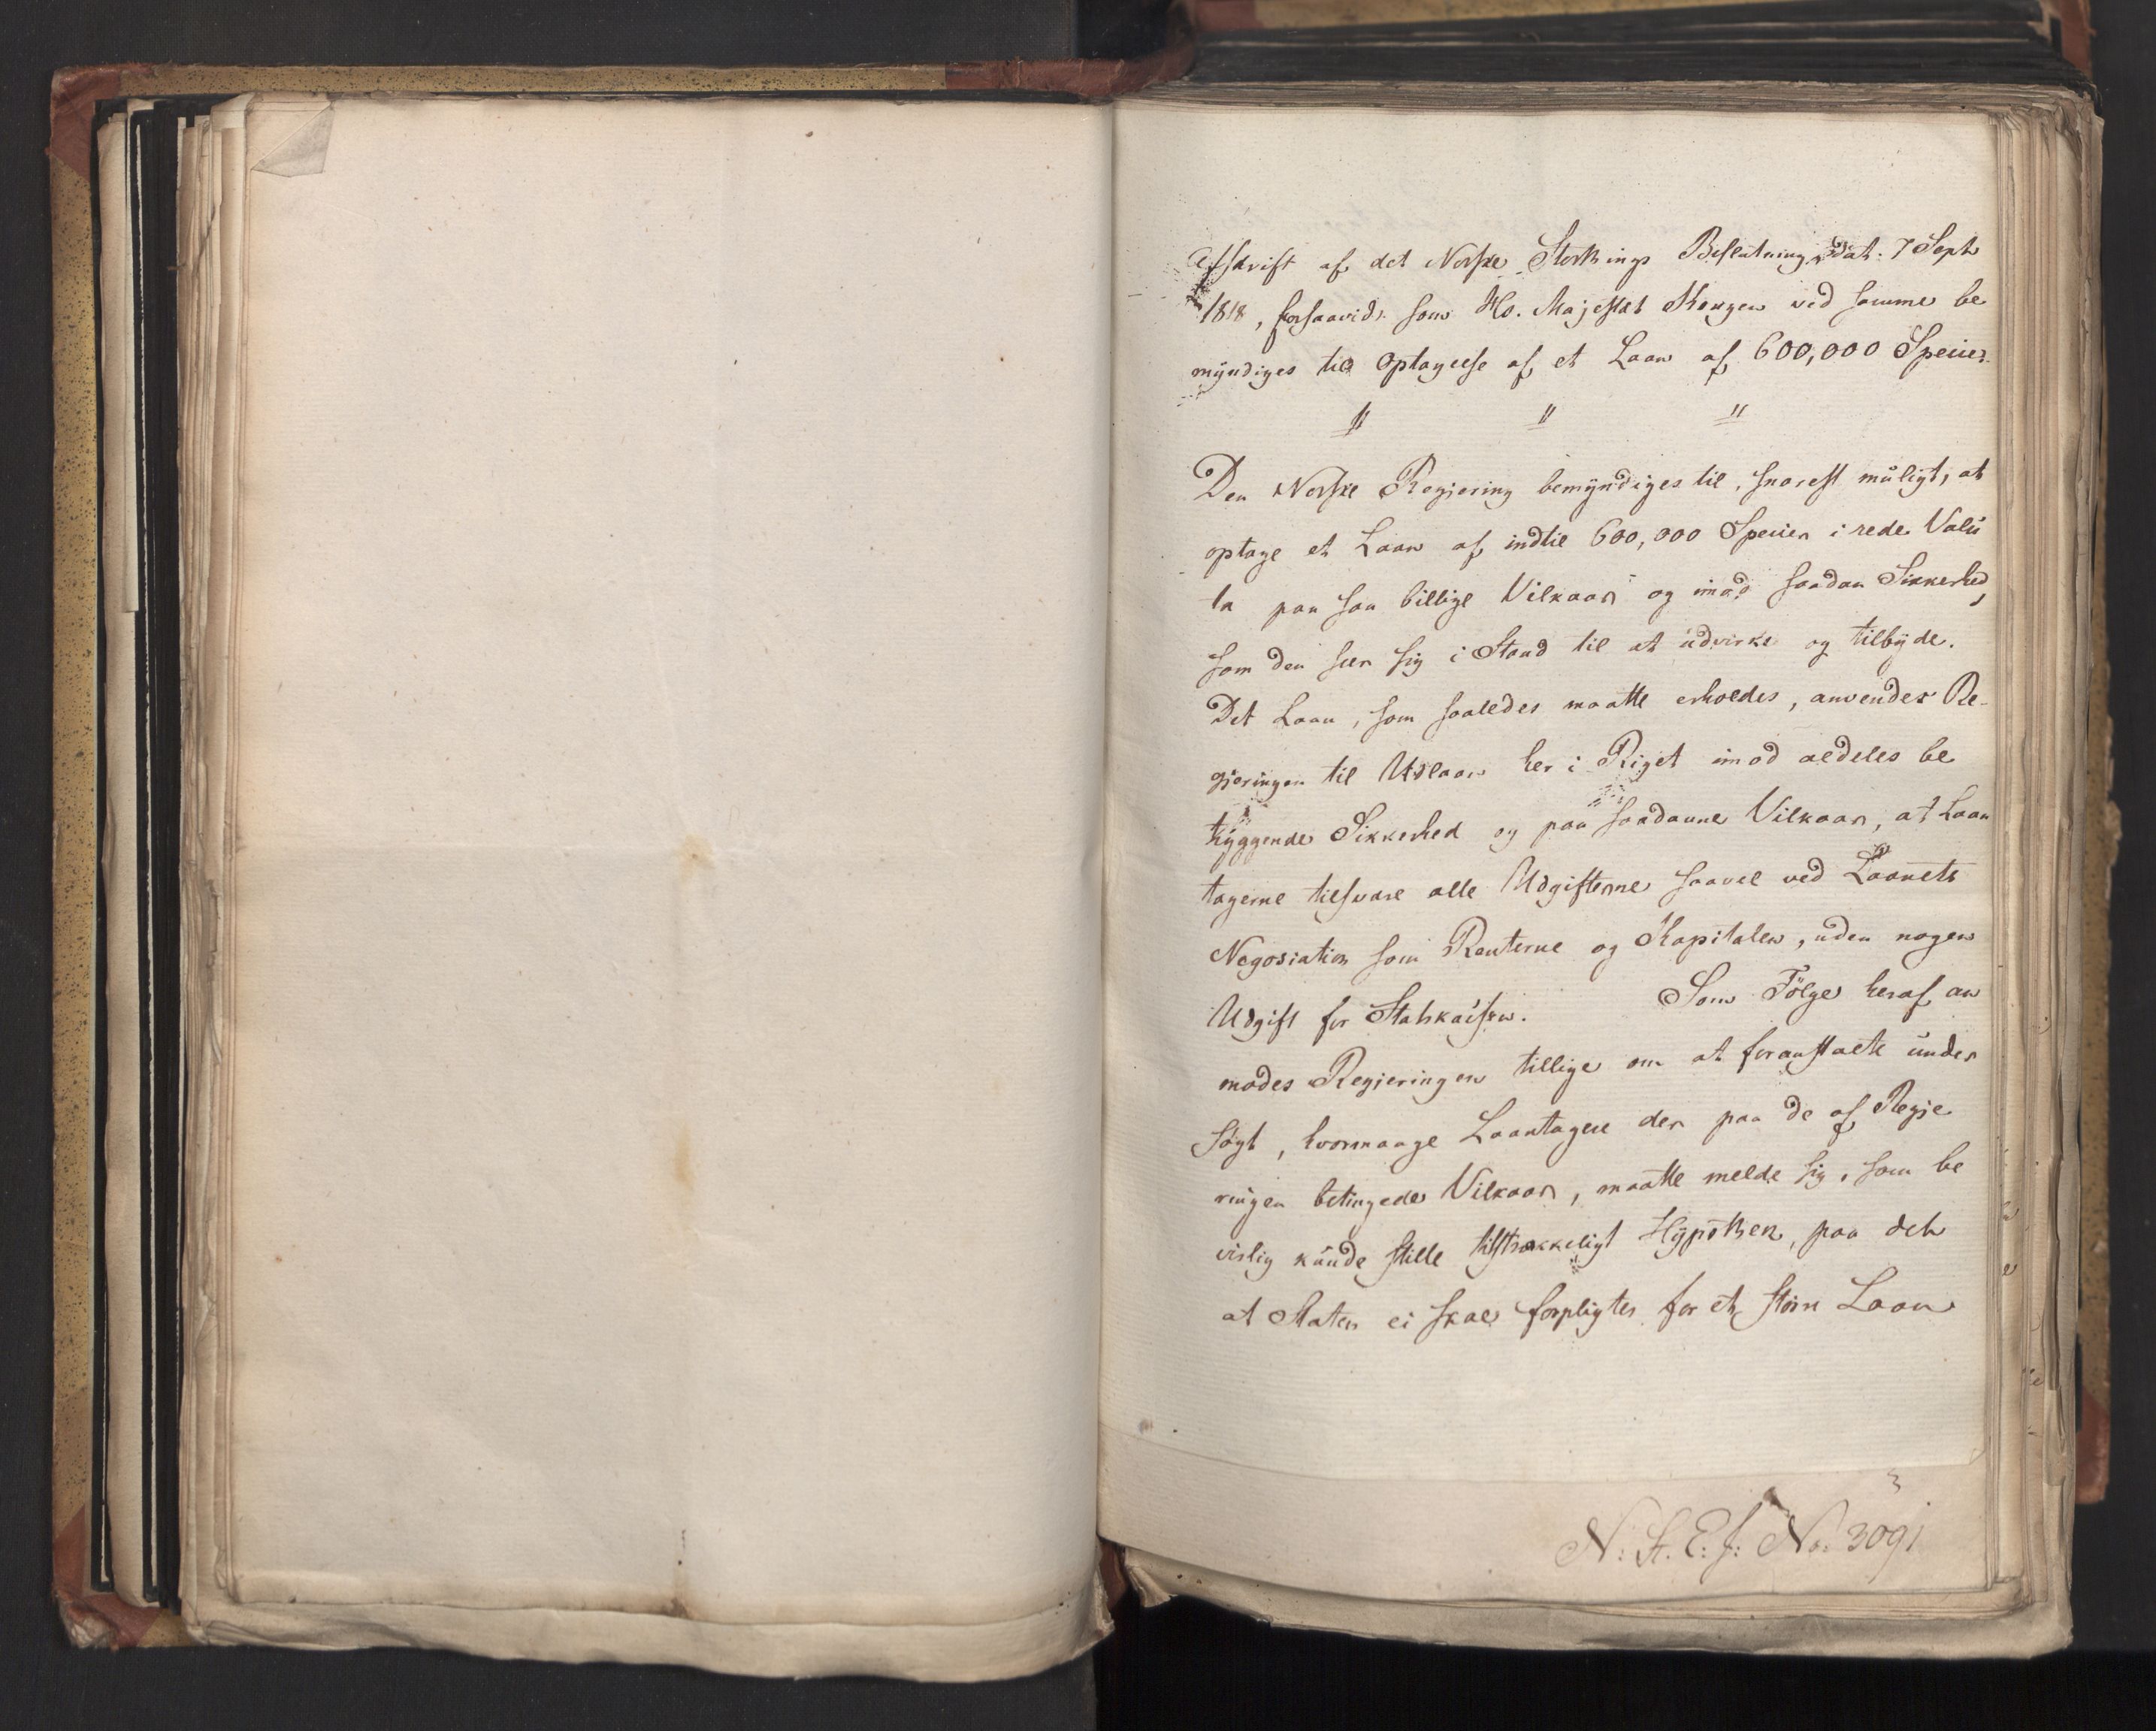 Afskrift af det Norske Storthings Beslutning, dat: 7 Sept
1818, forsaavidt som Hs. Majestæt Kongen ved samme be
myndiges til Optagelse af et Laan af 600,000 Species.
" " "
Den Norske Regjering bemyndiges til, snarest muligt, at
optage et Laan af indtil 600,000 Species i rede Valu
ta paa saa billige Vilkaar og imod saadan Sikkerhed,
som den seer sig i Stand til at udvirke og tilbyde.
Det Laan, som saaledes maatte erholdes, anvender Re-
gjeringen til Udlaan her i Riget imod aldeles be
tryggende Sikkerhed og paa saadanne Vilkaar, at Laan
tagerne tilsvare alle Udgifterne saavel ved Laanets
Negosiation som Renterne og Kapitalen, uden nogen
Udgift for Statskassen. Som Følge heraf an
modes Regjeringen tillige om at foranstalte under
søgt, hvormange Laantagere der paa de af Regje
ringen betingede Vilkaar, maatte melde sig, som be
vislig kunde stille tilstrækkeligt Hypothek, paa det
at Staten ei skal forpligtes for et større Laan
N: St. E: f: No. 3091